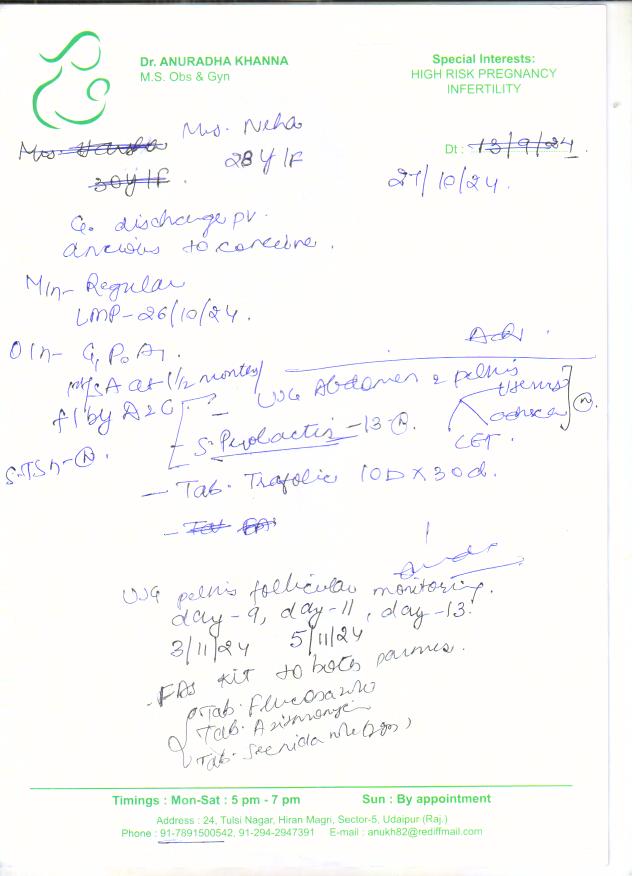 Dr. ANURADHA KHANNA
M.S. Obs & Gyn
Special Interests:
HIGH RISK PREGNANCY
INFERTILITY
Mrs. Neha
28Y/F
Mrs.
30Y/F
Dt : 13/9/24
27/10/24.
C/o. discharge pv.
anxious to conceive.
M/h- Regular
LMP-26/10/24.
O/h- G, P0 A1.
Adv.
A at 1 1/2 months
f/by D&C
USG Abdomen & pelvis
uterus
adnexa
N.
S. Prolactin -13 N.
CET.
S.TSH- N.
- Tab. Trafolic 1OD X 30d.
- Tab
USG pelvis follicular monitoring.
day-9, day-11, day-13.
3/11/24 5/11/24
- FAS kit to both partners.
Tab. Fluconazole
Tab. Azithromycin
Tab. Secnidazole (2gm)
Timings : Mon-Sat : 5 pm - 7 pm
Sun : By appointment
Address : 24, Tulsi Nagar, Hiran Magri, Sector-5, Udaipur (Raj.)
Phone : 91-7891500542, 91-294-2947391 E-mail : anukh82@rediffmail.com